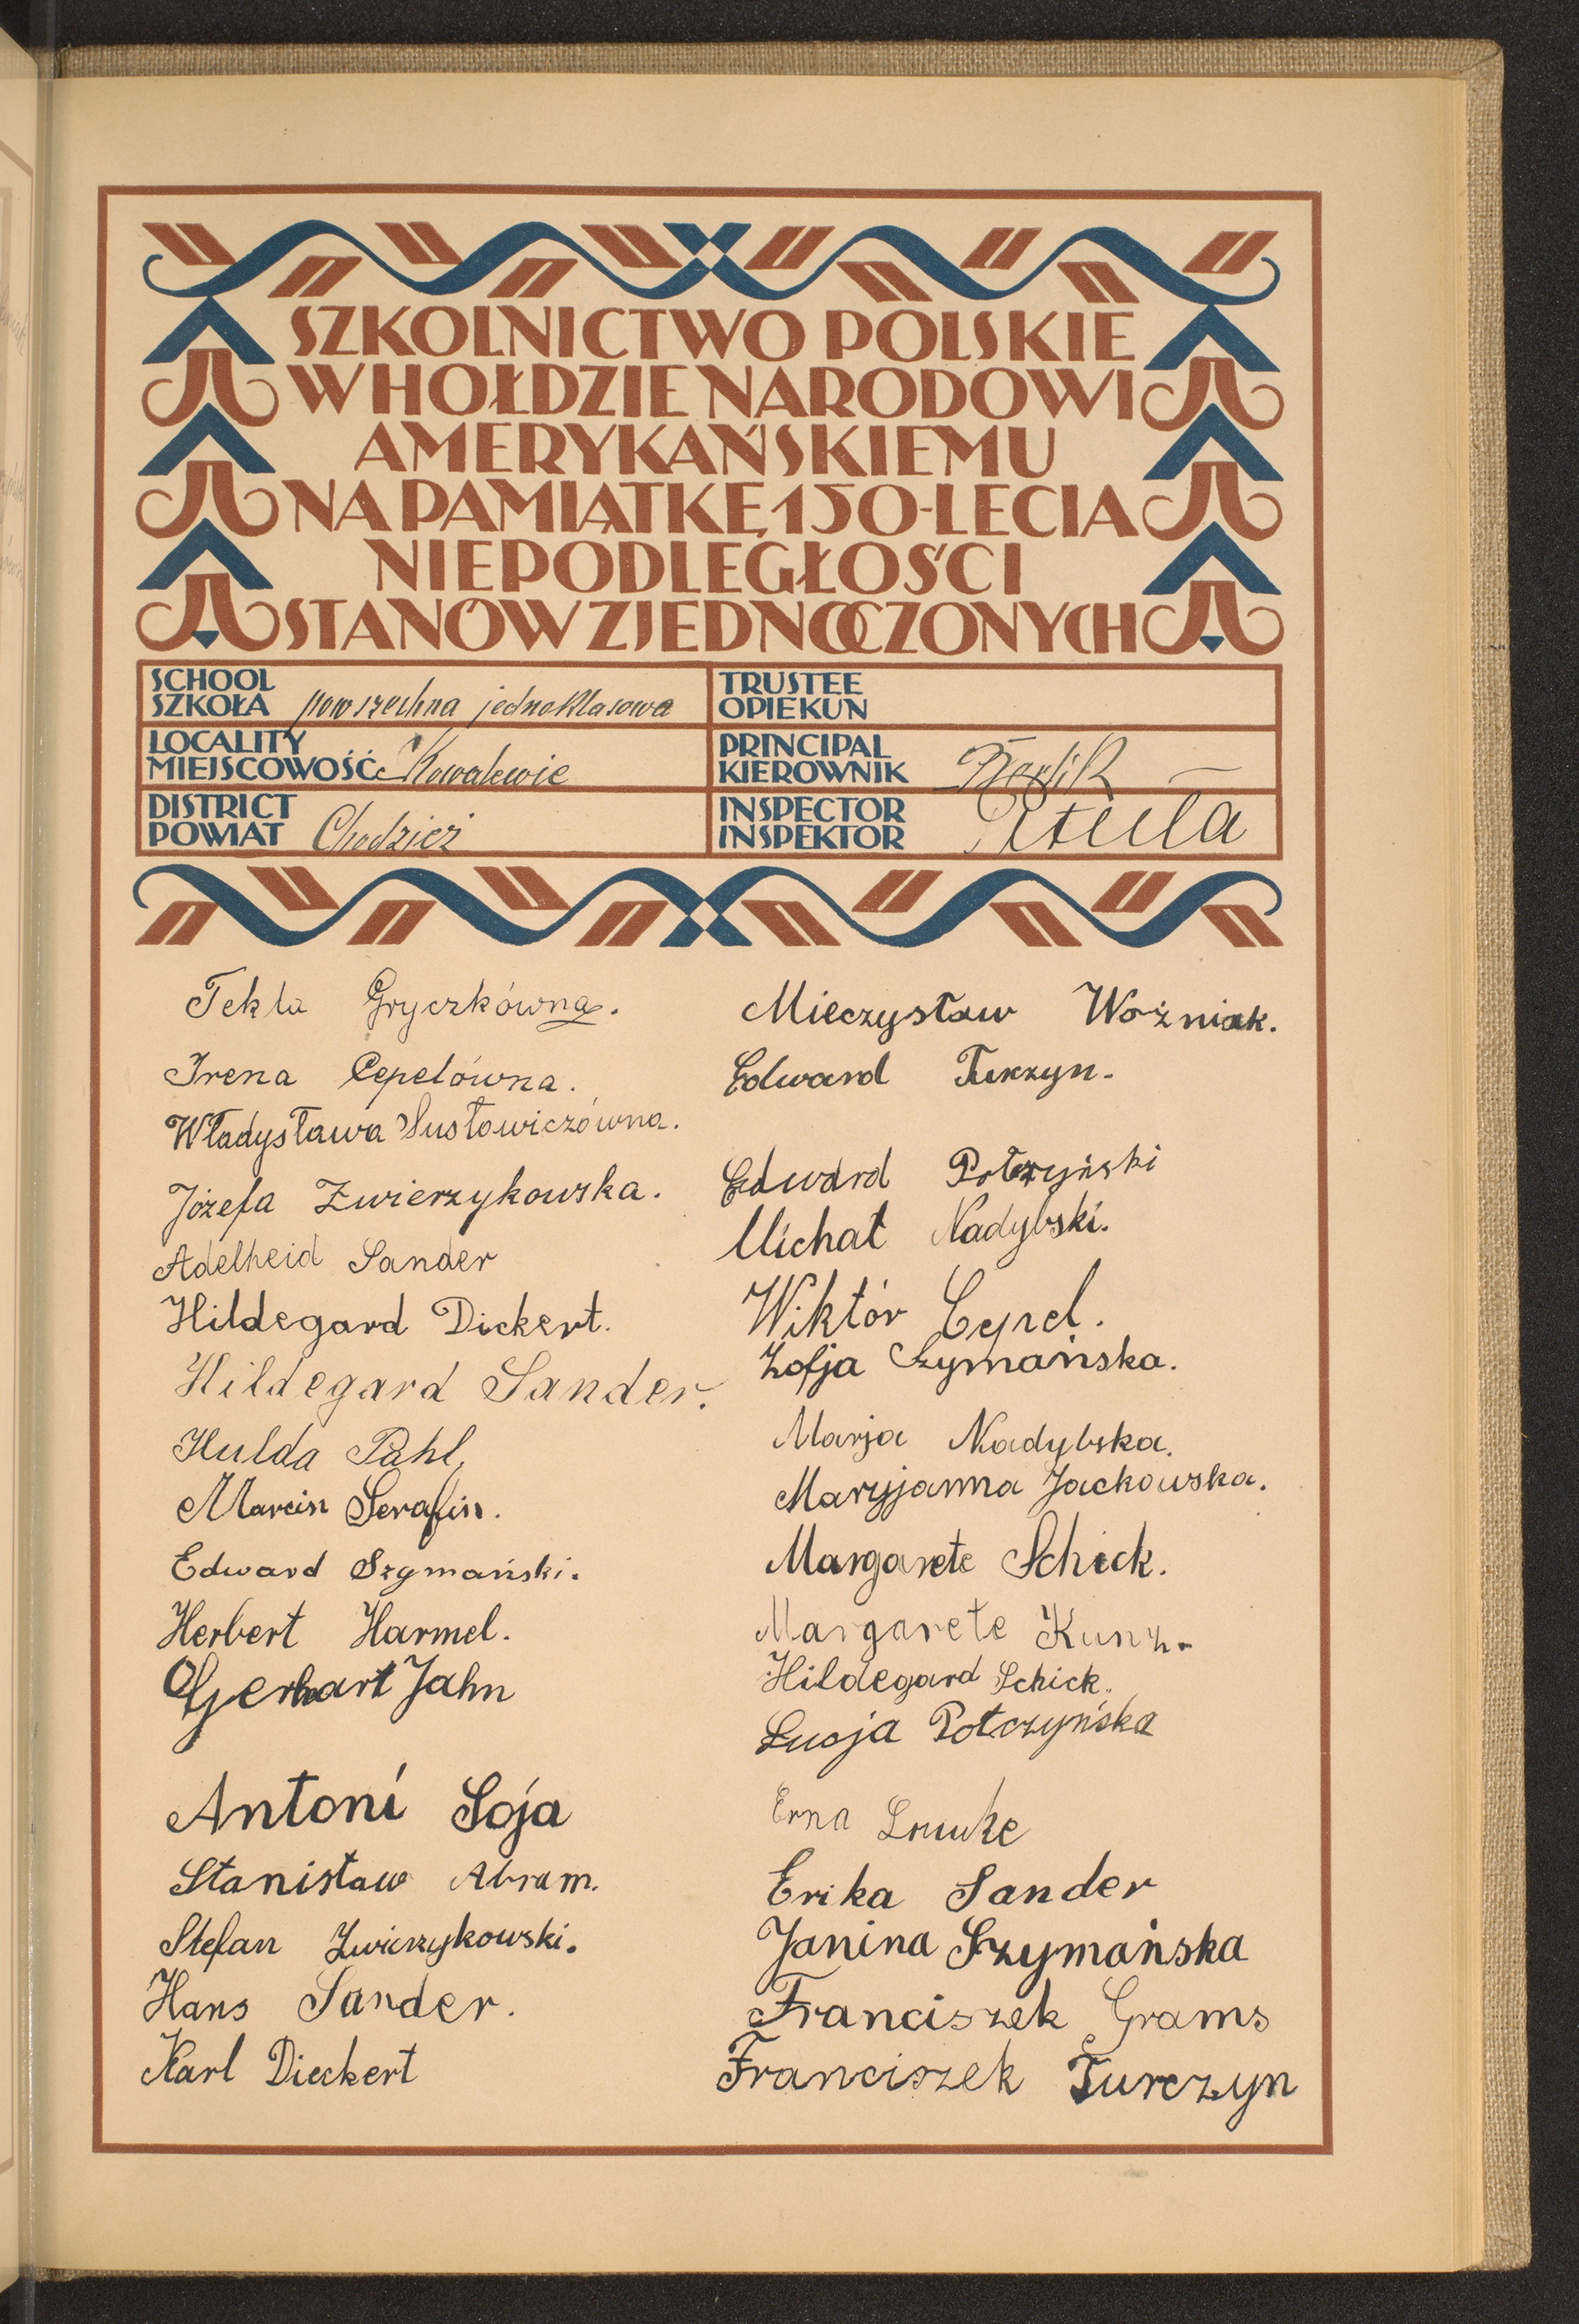 SZKOLNICTWO POLSKIE
W HOŁDZIE NARODOWI
AMERYKAŃSKIEMU
NA PAMIĄTKĘ 150-LECIA
NIEPODLEGŁOŚCI
STANÓW ZJEDNOCZONYCH
SCHOOL
SZKOŁA powszechna jednoklasowa
LOCALITY
MIEJSCOWOŚĆ Kowalewie
DISTRICT
POWIAT Chodzież
TRUSTEE
OPIEKUN
PRINCIPAL
KIEROWNIK
INSPECTOR
INSPEKTOR
Tekla Gryczkówna.
Irena Cepelówna.
Władysława Susłowiczówna.
Józefa Zwierzykowska.
Adelheid Sander
Hildegard Dickert.
Hildegard Sander.
Hulda Pahl,
Marcin Serafin.
Edward Szymański.
Herbert Harmel.
Gerhart Jahn
Antoni Soja
Stanisław Abram.
Stefan Zwierzykowski.
Hans Sander.
Karl Dieckert
Mieczysław Woźniak.
Edward Turzyn.
Edward Połczyński
Michał Nadybski.
Wiktór Cepel.
Zofja Szymańska.
Marja Nadybska.
Maryjanna Jackowska.
Margarete Schick.
Margarete Kunz.
Hildegard Schick.
Lucja Połczyńska
Erna
Erika Sander
Janina Szymańska
Franciszek Grams
Franciszek Turczyn